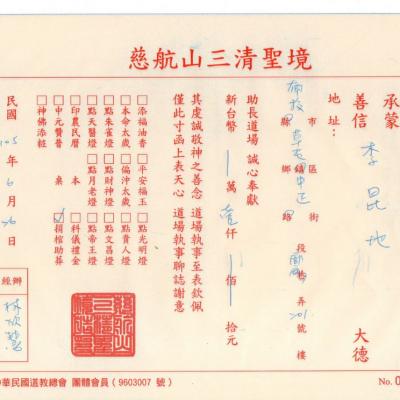 慈航山三清聖境
承蒙
善信 李昆地 大德
地址：南投縣市草屯鄉鎮區中正路街段巷弄201號樓
助長道場 誠心奉獻
新台幣 萬壹仟 佰 拾元
其虔誠敬神之善念 道場執事至表欽佩
僅此寸函上表天心 道場執事聊誌謝意
□添福油香 □平安福玉 □點光明燈
□本命太歲 □偏沖太歲 □點貴人燈
□點朱雀燈 □點財神燈 □點文昌燈
□點天醫燈 □點月老燈 □點帝王燈
□印農民曆 本 □科儀禮金
□中元贊普 桌 捐棺助葬
□神佛添粧
民國105年6月26日
經辦
中華民國道教總會 團體會員（9603007 號）
No. 0